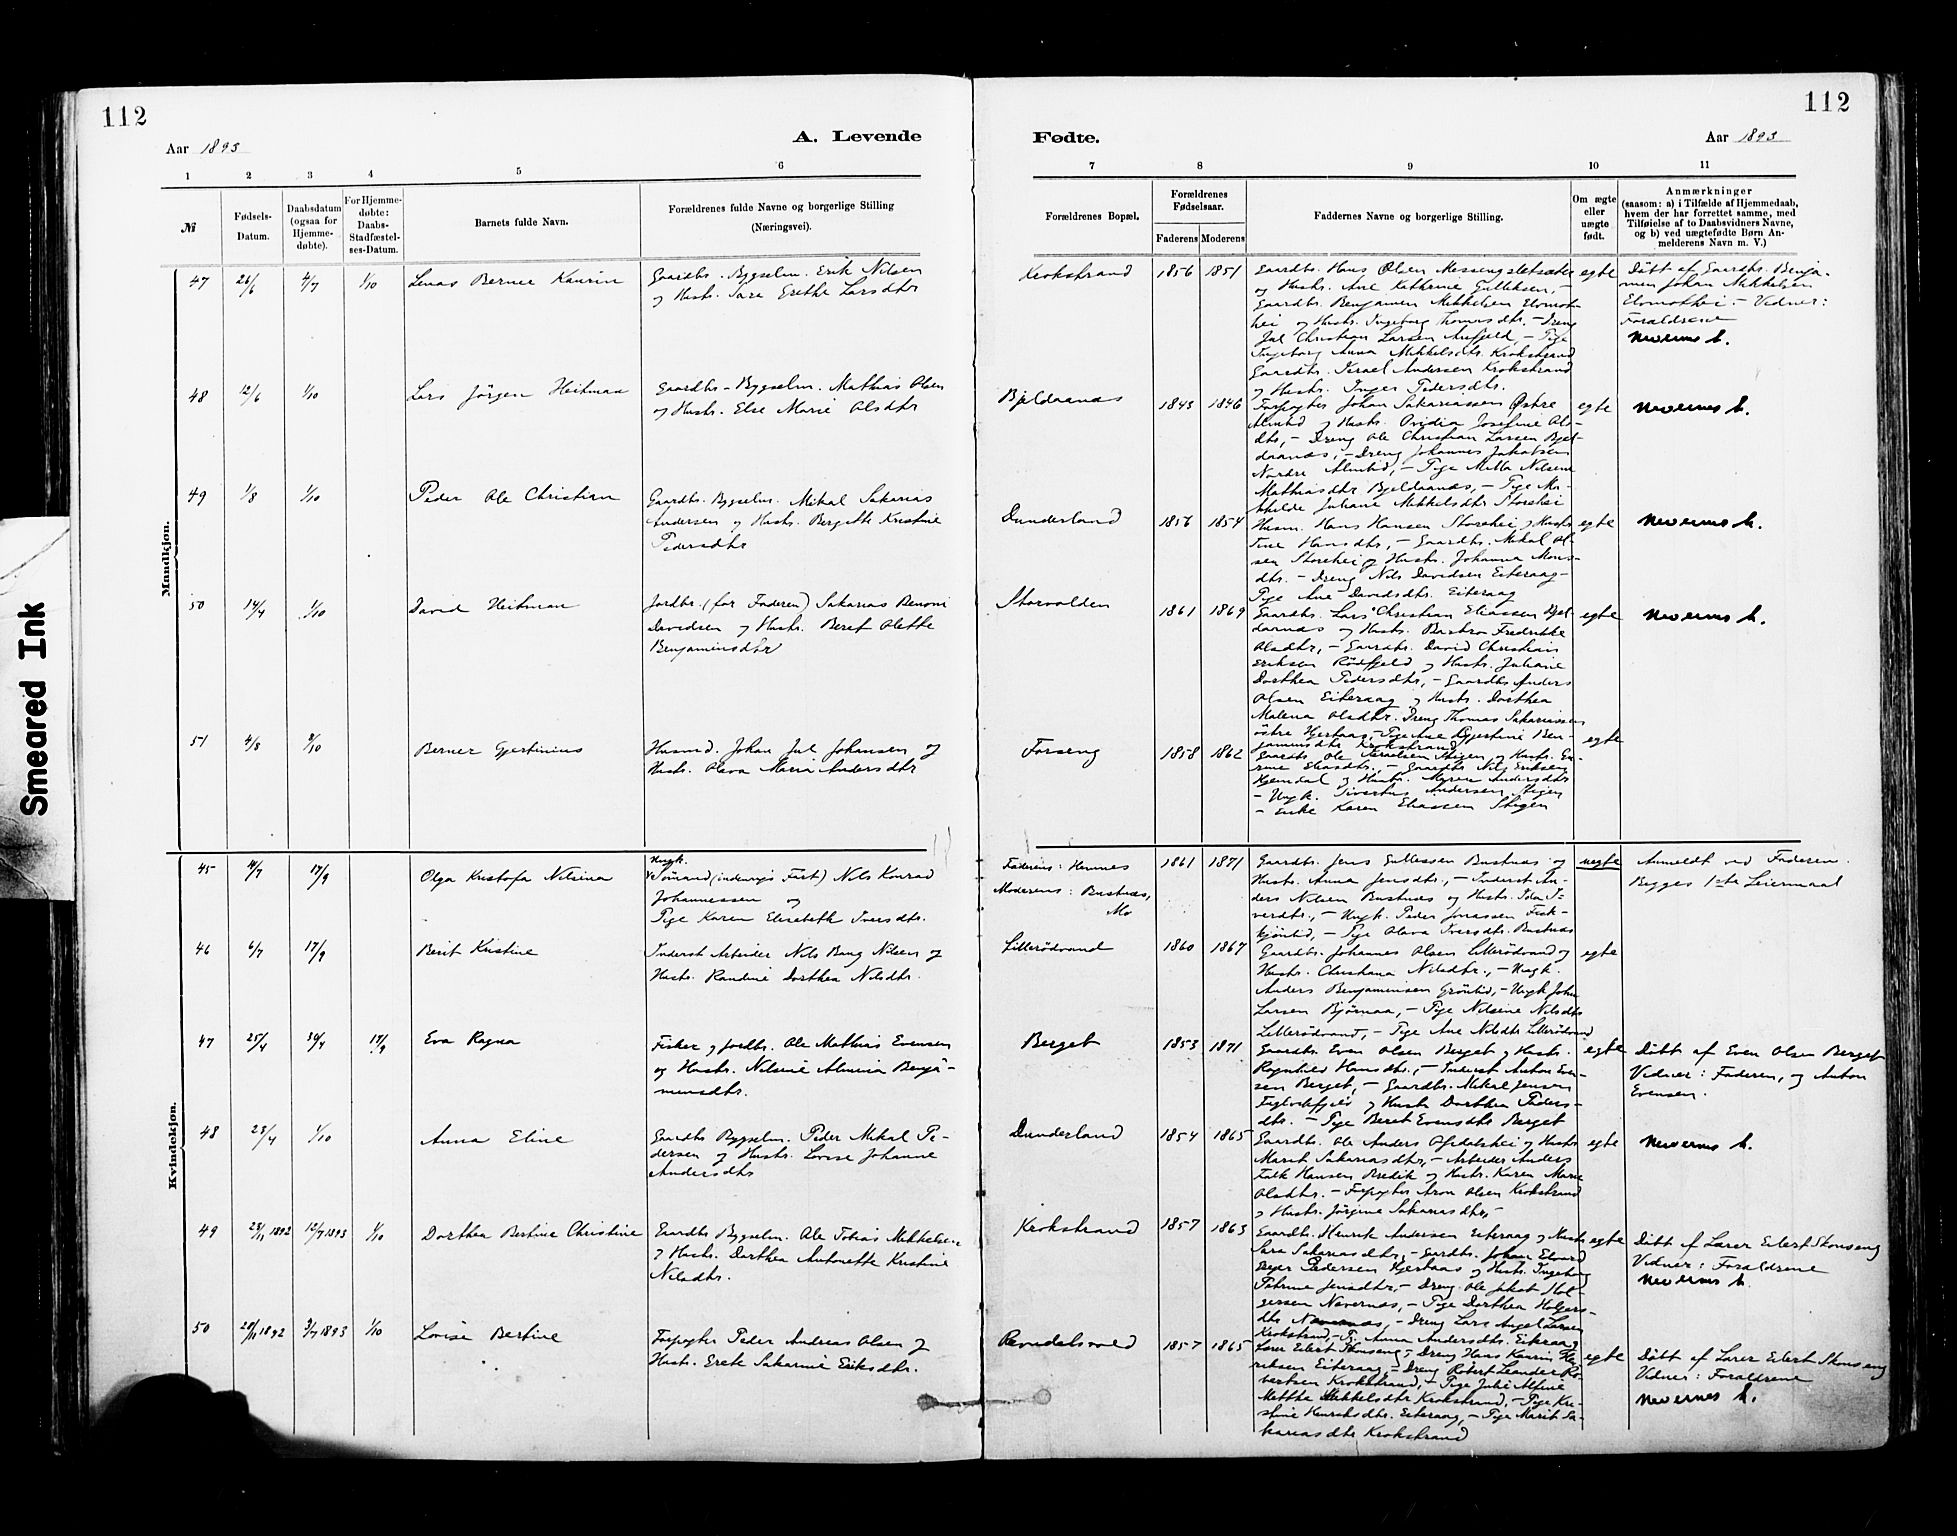 112
112
Aar 1893
A. Levende
Fødte.
Aar 1893
1 2 3 4 5 6 7 8 9 10 11
№
Fødsels-
Datum.
Daabsdatum
(ogsaa for
Hjemme-
døbte).
For Hjemme-
døbte:
Daabs-
Stadfæstel-
ses-Datum.
Barnets fulde Navn.
Forældrenes fulde Navne og borgerlige Stilling
(Næringsvei).
Forældrenes Bopæl.
Forældrenes
Fødselsaar.
Faderens Moderens
Faddernes Navne og borgerlige Stilling.
Om ægte
eller
uægte
født.
Anmærkninger
(saasom: a) i Tilfælde af Hjemmedaab,
hvem der har forrettet samme, med
Tilføielse af to Daabsvidners Navne,
og b) ved uægtefødte Børn An-
melderens Navn m. V.)
Mandkjøn.
47 26/6 4/7 1/10 Bernee Kaurin
Gaardbr. Bygselm. Erik Nilsen
og Hustr. Sara Grethe Larsdtr
Krokstrand 1856 1851
Gaardbr. Hans Olsen Messingsletsæter
og Hustr. Ane Kathrine Gulleksen, -
Gaardbr. Benjamin Mikkelsen
og Hustr. Ingeborg Thomasdtr. - Dreng
Jul Christian Larsen - Pige
Ingeborg Anna Mikkelsdtr. Krokstrand
Gaardbr. Israel Andersen Krokstrand
og Hustr. Inger Pedersdtr.
egte
Døbt af Gaardbr. Benja-
min Johan Mikkelsen
- Vidner:
Forældrene
Nevernes k.
48 12/6 1/10 Lars Jörgen Heitman
Gaardbr - Bygselm. Mathias Olsen
og Hustr. Else Marie Olsdtr
Bjeldaanæs 1843 1846
Forpagter Johan Sakariassen Østre
Almlid og Hustr. Ovidia Josefine Ols-
dtr, - Dreng Ole Christian Larsen Bjel-
daanæs, - Dreng Johannes Jakobsen
Nordre Almlid, - Pige Milla Nilsine
Mathiasdtr Bjeldaanæs, - Pige Ma-
thilde Juliane Mikkelsdtr Storehei
egte Nevernes k.
49 1/8 1/10 Peder Ole Christian
Gaardbr. Bygselm. Mikal Sakarias
Andersen og Hustr. Bergitte Kristine
Pedersdtr
Dunderland 1856 1854
Husm. Hans Hansen Storehei og Hustr
Tine Hansdtr, - Gaardbr. Mikal Ol-
sen Storehei og Hustr. Johanna Mons-
dtr. - Dreng Nils Davidsen Eiteraag -
Pige Ane Davidsdtr. Eiteraag
egte Nevernes k.
50 14/4 1/10 David Heitman
Jordbr. (for Faderen) Sakarias Benoni
Davidsen og Hustr. Beret Olette
Benjaminsdtr
Storvolden 1861 1869
Gaardbr. Lars Christian Eliassen Bjel-
daanæs og Hustr. Fredrikke
Olsdtr, - Gaardbr. David Christian
Eriksen Rödfjeld og Hustr. Juliane
Dorthea Pedersdtr, - Gaardbr Anders
Olsen Eiteraag og Hustr. Dorthea
Malena Olsdtr. Dreng Thomas Sakariassen
östre Hjertaas, - Pige Ane Gjertine Ben-
jaminsdtr Krokstrand
egte Nevernes k.
51 4/8 8/10 Berner Gjertinius
Husmd. Johan Jul Johansen og
Hustr. Olava Maria Andersdtr
Forseng 1858 1862
Gaardbr. Ole Israelsen Stigen og Hustr. Ka-
rine Eliasdtr, - Gaardbr Nils Eriksen
Hjemdal og Hustr. Andersdtr
- Ungk. Sivertius Andersen Stigen
- Enke Karen Eliassen Stigen
egte
Kvindekjøn.
45 14/7 17/9 Olga Kristofa Nilsina
Ungk.
Sömand (indenrigs Fart) Nils Konrad
Johannessen og
Pige Karen Elisabeth Iversdtr.
Faderens: Hemnes
Moderens: Bustnæs,
Mo
1861 1871
Gaardbr. Jens Gullessen Bustnæs og
Hustr. Anna Jensdtr., - Inderst An-
ders Nilsen Bustnæs og Hustr. Ida I-
verdtr., - Ungk. Peder Jonassen Fisk-
kjönlid, - Pige Olava Iversdtr. Bustnæs
uegte
Anmeldt ved Faderen.
Begges 1ste Leiermaal
46 6/7 17/9 Berit Kristine
Inderst Arbeider Nils Bang Nilsen og
Hustr. Randine Dorthea Nilsdtr.
Lillerödvand 1860 1867
Gaardbr. Johannes Olsen Lillerödvand og
Hustr. Christiana Nilsdtr., - Ungk.
Anders Benjaminsen Grönlid, - Ungk John
Larsen Björnaa, - Pige Nilsine Nilsdtr
Lillerödvand, - Pige Ane Nilsdtr Lillerödvand
egte
47 25/4 30/4 17/9 Eva Ragna
Fisker og Jordbr. Ole Mathias Evensen
og Hustr. Nilsine Almina Benja-
minsdtr.
Berget 1853 1871
Gaardbr. Even Olsen Berget og Hustr.
Ragnhild Hansdtr., - Inderst Anton Even-
sen Berget, - Gaardbr. Mikal Jensen
Fuglvikfjeld og Hustr Dorthea Peders-
dtr. - Pige Beret Evensdtr Berget
egte
Døbt af Even Olsen Berget
Vidner: Faderen, og Anton
Evensen.
48 23/4 1/10 Anna Eline
Gaardbr Bygselm. Peder Mikal Pe-
dersen og Hustr. Lovise Johanne
Andersdtr
Dunderland 1854 1865
Gaardbr. Ole Anders og Hustr
Marit Sakariasdtr, - Arbeider Anders
Falk Hansen Bredik og Hustr. Karen Marie
Olsdtr. - Forpagter Aron Olsen Krokstrand
og Hustr. Jörgine Sakariasdtr, -
egte Nevernes k.
49 23/11 1892 12/7 1893 1/10 Dorthea Bertine Christine
Gaardbr Bygselm. Ole Tobias Mikkelsen
og Hustr. Dorthea Antonette Kristine
Nilsdtr.
Krokstrand 1857 1863
Gaardbr. Henrik Andersen Eiteraag og Hustr
Sara Sakariasdtr, - Gardbr. Johan Edvard
Beyer Pedersen Hjertaas og Hustr. Ingeborg
Petrine Jensdtr, - Dreng Ole Jakob Hol-
gersen Nævernæs, - Pige Dorthea Holgers-
dtr Nævernæs, - Dreng Lars Angel Larsen
Krokstrand, - P. Anna Andersdtr. Eiteraag
egte
Døbt af Lærer Eilert Skonseng
Vidner: Forældrene
Nevernes k.
50 28/11 1892 3/7 1893 1/10 Lovise Bertine
Forpagter Peder Andreas Olsen og
Hustr. Erete Sakarine Eriksdtr.
Ravndalsvold 1857 1865
Lærer Eilert Skonseng, - Dreng Hans Kaurin Hen-
riksen Eiteraag, - Dreng Robert Leander Ro-
bertsen Krokstrand, - Pige Julie Alfine
Mikkelsdtr Krokstrand, - Pige Kri-
stine Henriksdtr. Eiteraag, - Pige Marit Sa-
kariasdtr Krokstrand
egte
Døbt af Lærer Eilert Skonseng
Vidner: Forældrene
Nevernes k.
Smeared Ink